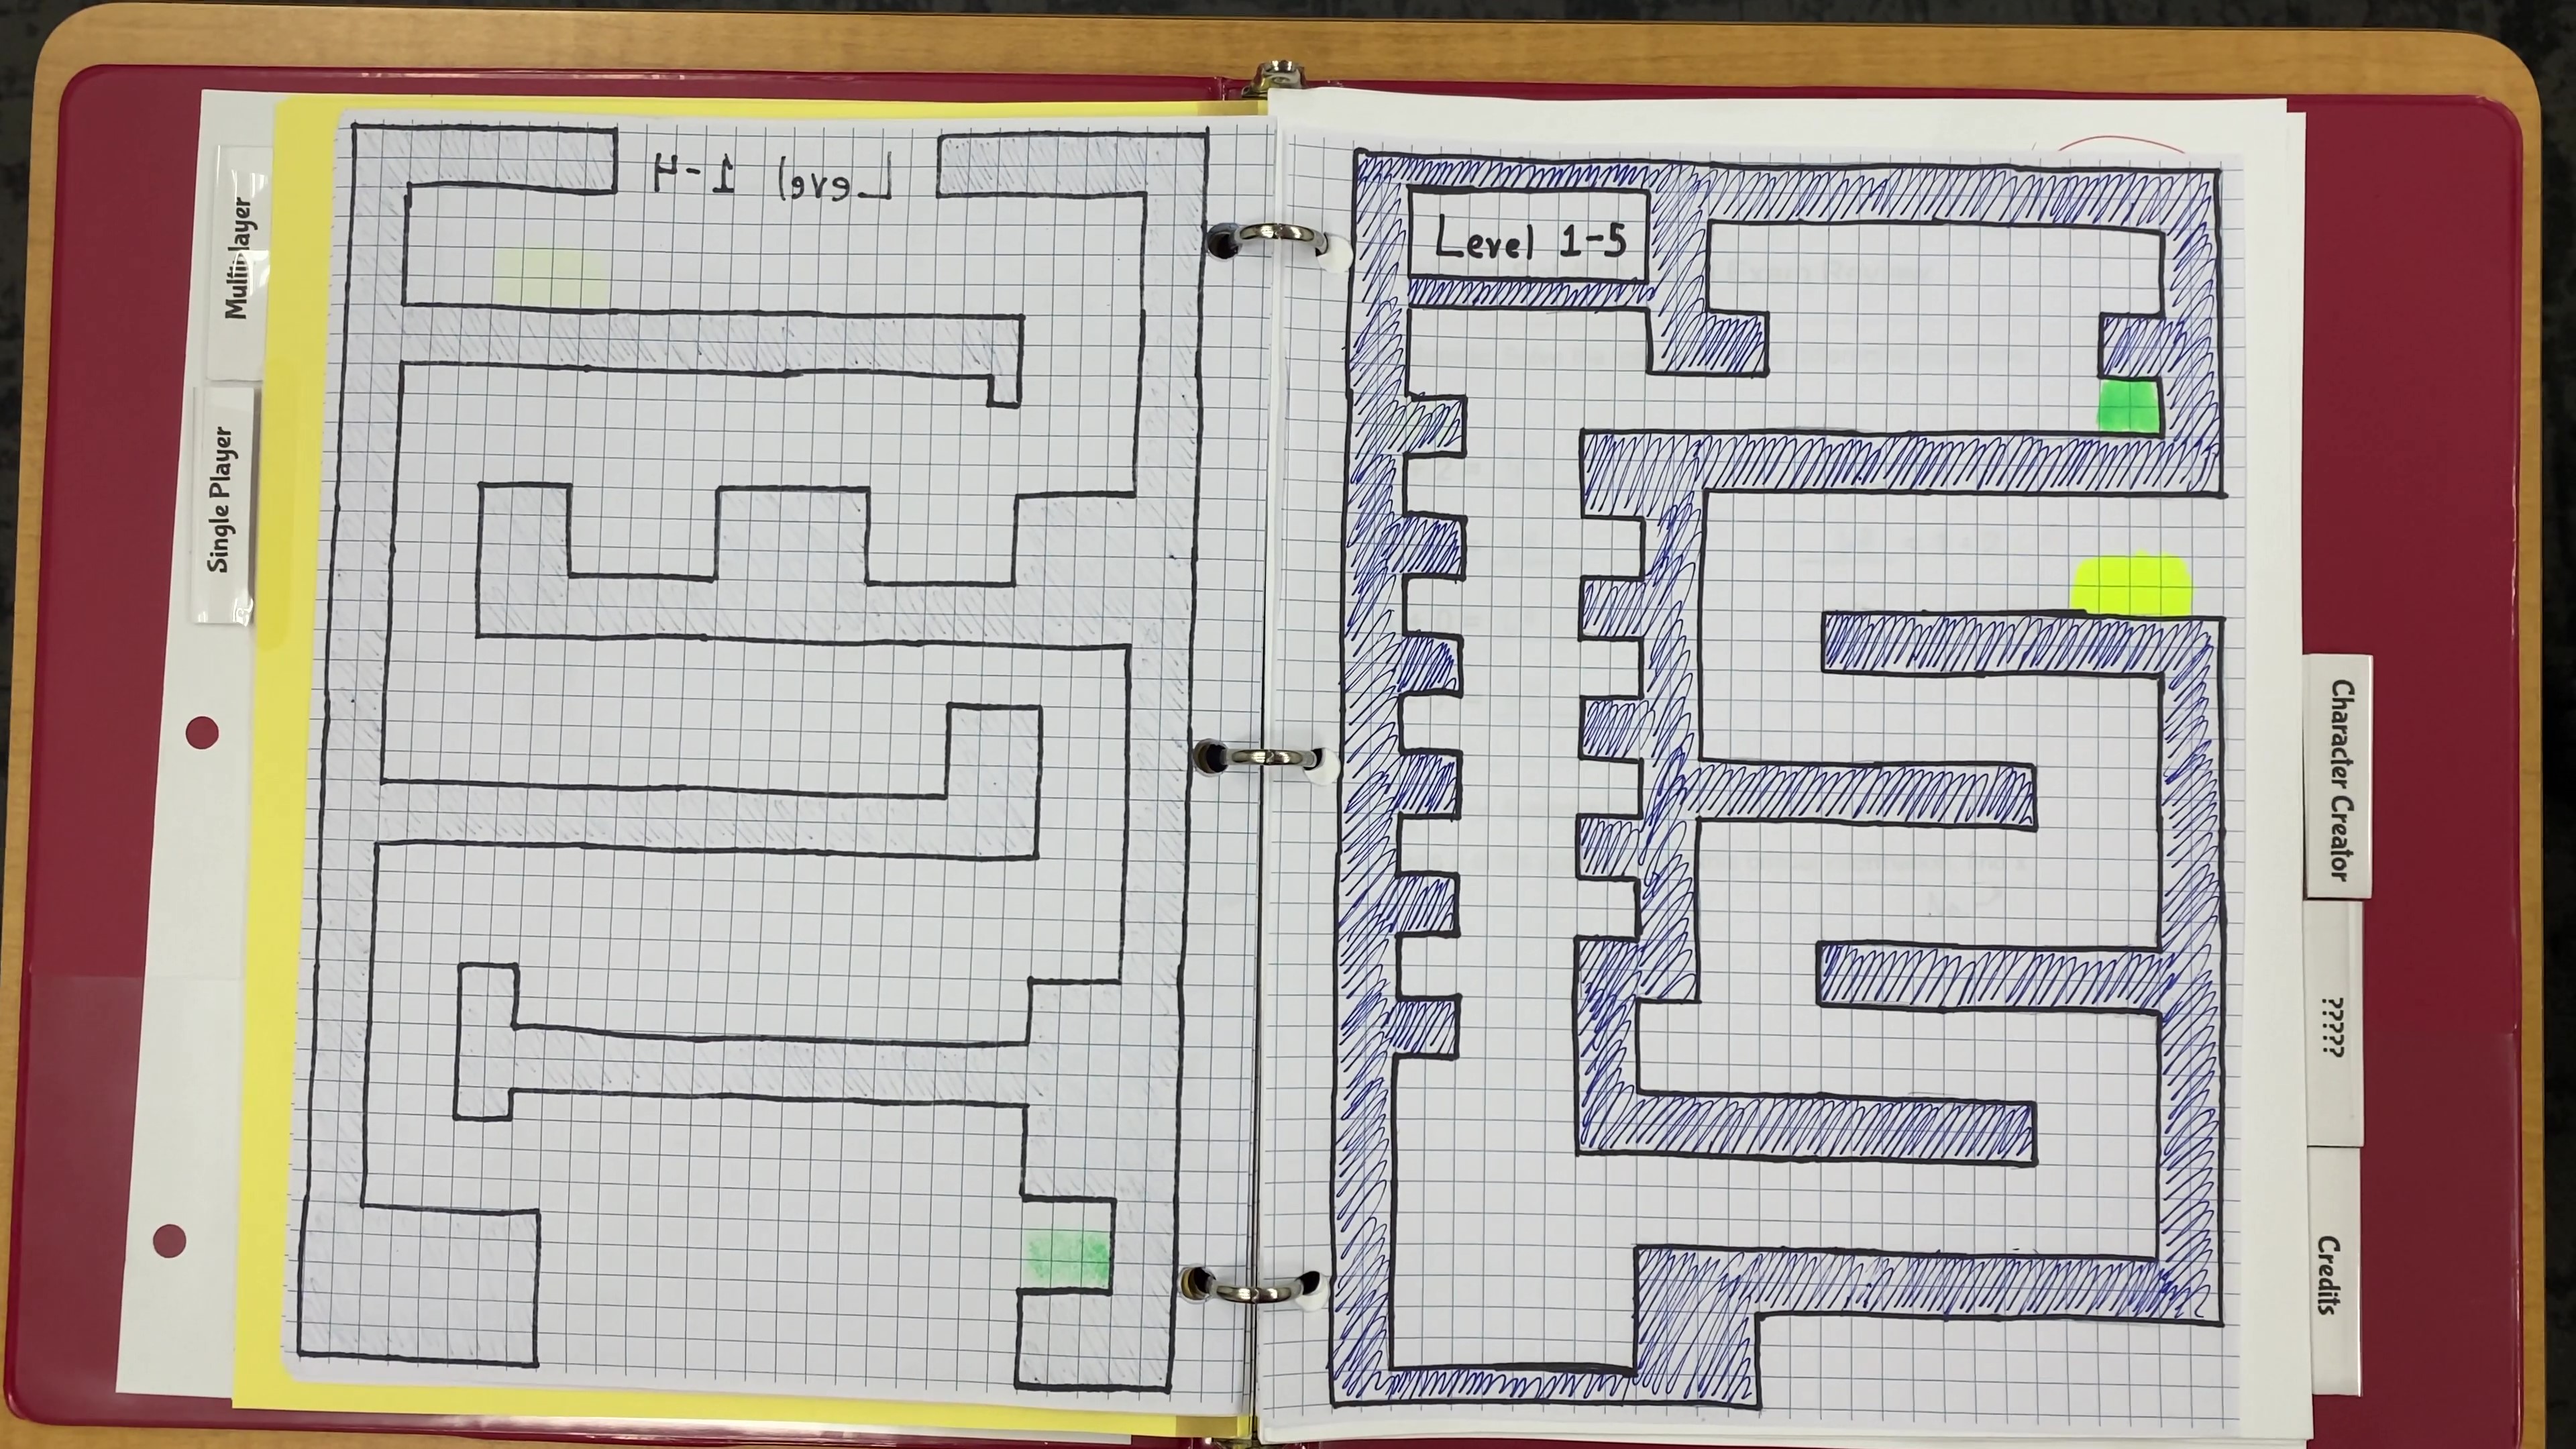 Multiplayer
Single Player
Level 1-4
Level 1-5
Character Creator
?????
Credits